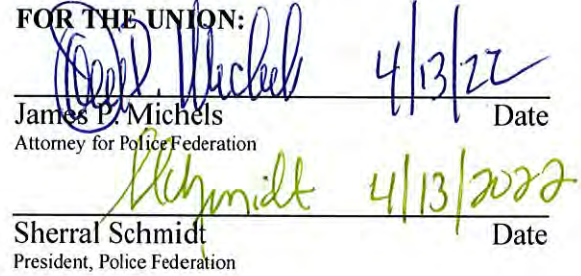 FOR THE UNION:
James P. Michels 4/13/22
James P. Michels Date
Attorney for Police Federation
SSchmidt 4/13/2022
Sherral Schmidt Date
President, Police Federation